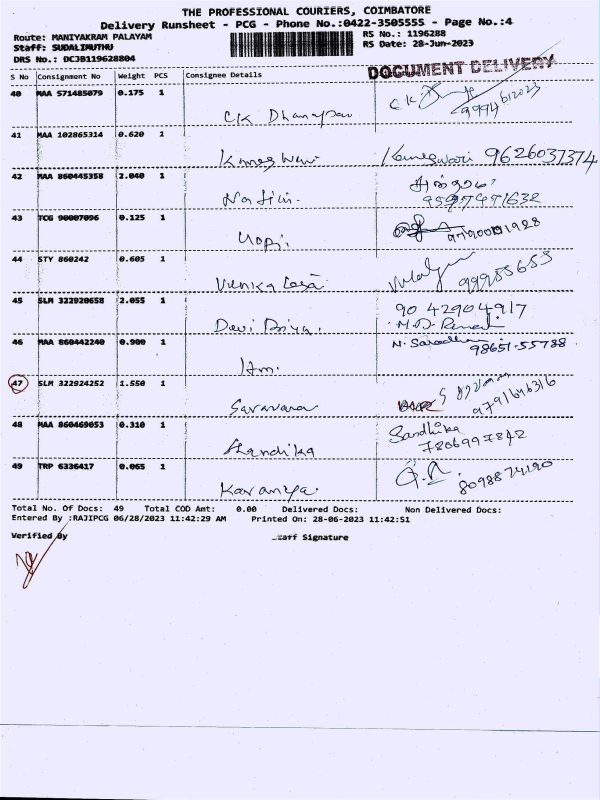 THE PROFESSIONAL COURIERS, COIMBATORE
Delivery Runsheet - PCG - Phone No.:0422-3505555 - Page No.:4
Route: MANIYAKRAM PALAYAM
RS No.: 1196288
Staff: SUDALIMUTHU
RS Date: 28-Jun-2023
DRS No.: DCJB119628804
DOCUMENT DELIVERY
S No Consignment No Weight PCS Consignee Details
40 MAA 571485079 0.175 1
CK
41 MAA 102865314 0.620 1
Kameswari Kameswari 9626037374
42 MAA 860445358 2.040 1
43 TCG 90007096 0.125 1
Gopi.
44 STY 860242 0.605 1
45 SLM 322920658 2.055 1
Devi Priya. 90 42904917
46 MAA 860442240 0.900 1
98651-55788
47 SLM 322924252 1.550 1
Saravana 9791646316
48 MAA 860469053 0.310 1
Sandhika
7806997842
49 TRP 6336417 0.065 1
8098874190
Total No. Of Docs: 49 Total COD Amt: 0.00 Delivered Docs: Non Delivered Docs:
Entered By :RAJIPCG 06/28/2023 11:42:29 AM Printed On: 28-06-2023 11:42:51
Verified By
Staff Signature